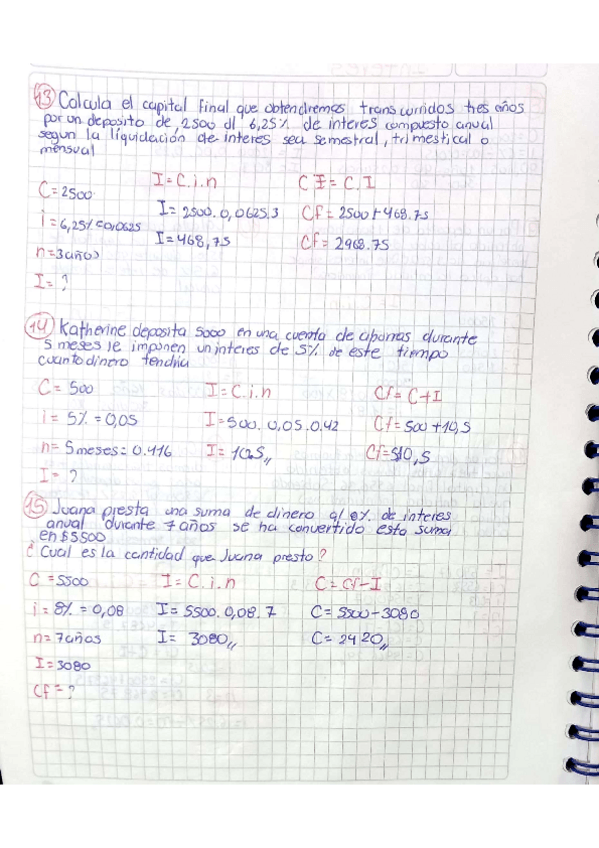 13 Calcula el capital final que obtendremos transcurridos tres años
por un deposito de, 2500 dl 6,25% de interes compuesto anual
segun la líquidación de interes sea semestral, trimestical o
mensual
C = 2500 I = C.i.n C I = C.I
i = 6,25% = 0,0625 I = 2500.0,0625.3 Cf = 2500 + 468.75
n = 3 años I = 468,75 Cf = 2968.75
I = ?
14 Katherine deposita 5000 en una cuenta de ahorras durante
5 meses le imponen un interes de 5% de este tiempo
cuanto dinero tendria
C = 500 I = C.i.n Cf = C+I
i = 5% = 0,05 I = 500.0,05.0.42 Cf = 500 + 10,5
n = 5 meses = 0.416 I = 10.5,, Cf = 510,5
I = ?
15 Juana presta una suma de dinero al 8% de interes
anual durante 7 años se ha convertido esta suma
en $5500
¿ Cual es la cantidad que Juana presto ?
C = 5500 I = C.i.n C = Cf - I
i = 8% = 0,08 I = 5500.0,08.7 C = 5500 - 3080
n = 7 años I = 3080,, C = 2420,,
I = 3080
Cf = ?